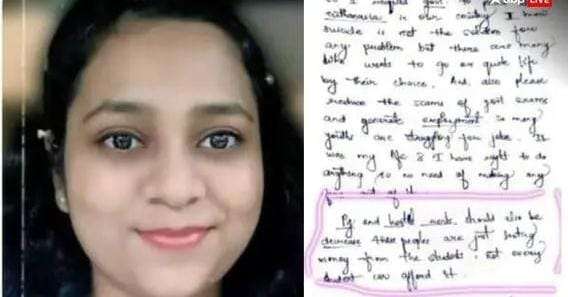 abp LIVE
So I request govt to
euthanasia in our country I know
suicide is not the solution for
any problem but there are many
who wants to go or quit life
by their choice. And also please
reduce the scams of govt exams
and generate employment so many
youths are struggling for jobs. It
was my life & I have right to do
anything so no need of making any
fun out of it.
Pg and hostel rents should also be
decrease these peoples are just looting
money from the students. Not every
student can afford it.